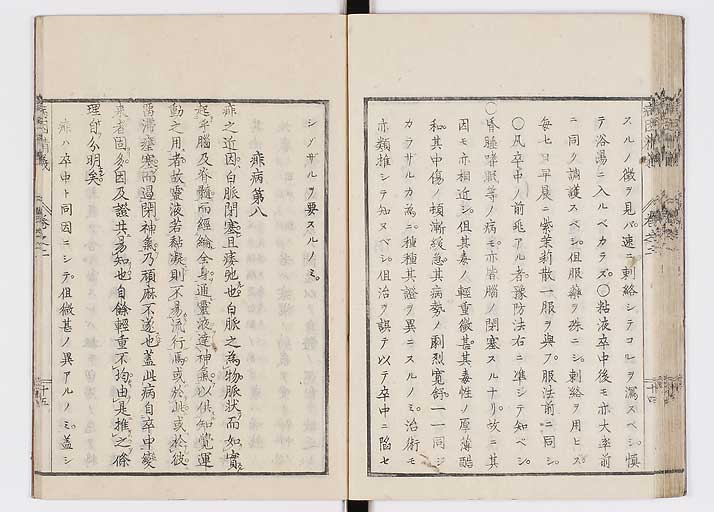 スルノ徴ヲ見バ速ニ刺絡シテコレヲ瀉スベシ。慎
テ浴湯ニ入ルベカラズ。〇粘液卒中後モ亦大率前
ニ同ク調護スベシ。但服藥ヲ殊ニシ。刺絡ヲ用ヒズ。
毎七日早晨ニ紫茉莉散一服ヲ與フ。服法前ニ同シ。
〇凡卒中ノ前兆アル者ハ豫防法右ニ準シテ知ベシ。
〇昏睡嗜眠等ノ病モ亦皆腦ノ閉塞スルナリ。故ニ其
因モ亦相近シ。但其毒ノ輕重微甚。其毒性ノ厚薄酷
和。其中傷ノ頓漸緩急。其病勢ノ劇烈寛舒。一一同ジ
カラザルカ為ニ。種種其證ヲ異ニスルノミ。治術モ
亦類推シテ知ヌベシ。但治ヲ誤テ以テ卒中ニ陷セ
シメザルヲ要スルノミ。
痱病第八
痱之近因。白脈閉塞。且痿弛也。白脈之為物。脈狀而如實。
起乎腦及脊髓。而經綸全身。通靈液。達神氣。以供知覺運
動之用者。故靈液若黏凝。則不易流行焉。或於此。或於彼。
留滯壅塞。而遏閉神氣。乃頑麻不遂也。蓋此病自卒中變
来者固多。因及證共易知也。自餘輕重不均。由是推之。條
理自分明矣。
痱ハ卒中ト同因ニシテ。但微甚ノ異アルノミ。蓋シ
巻之二
十四
十五